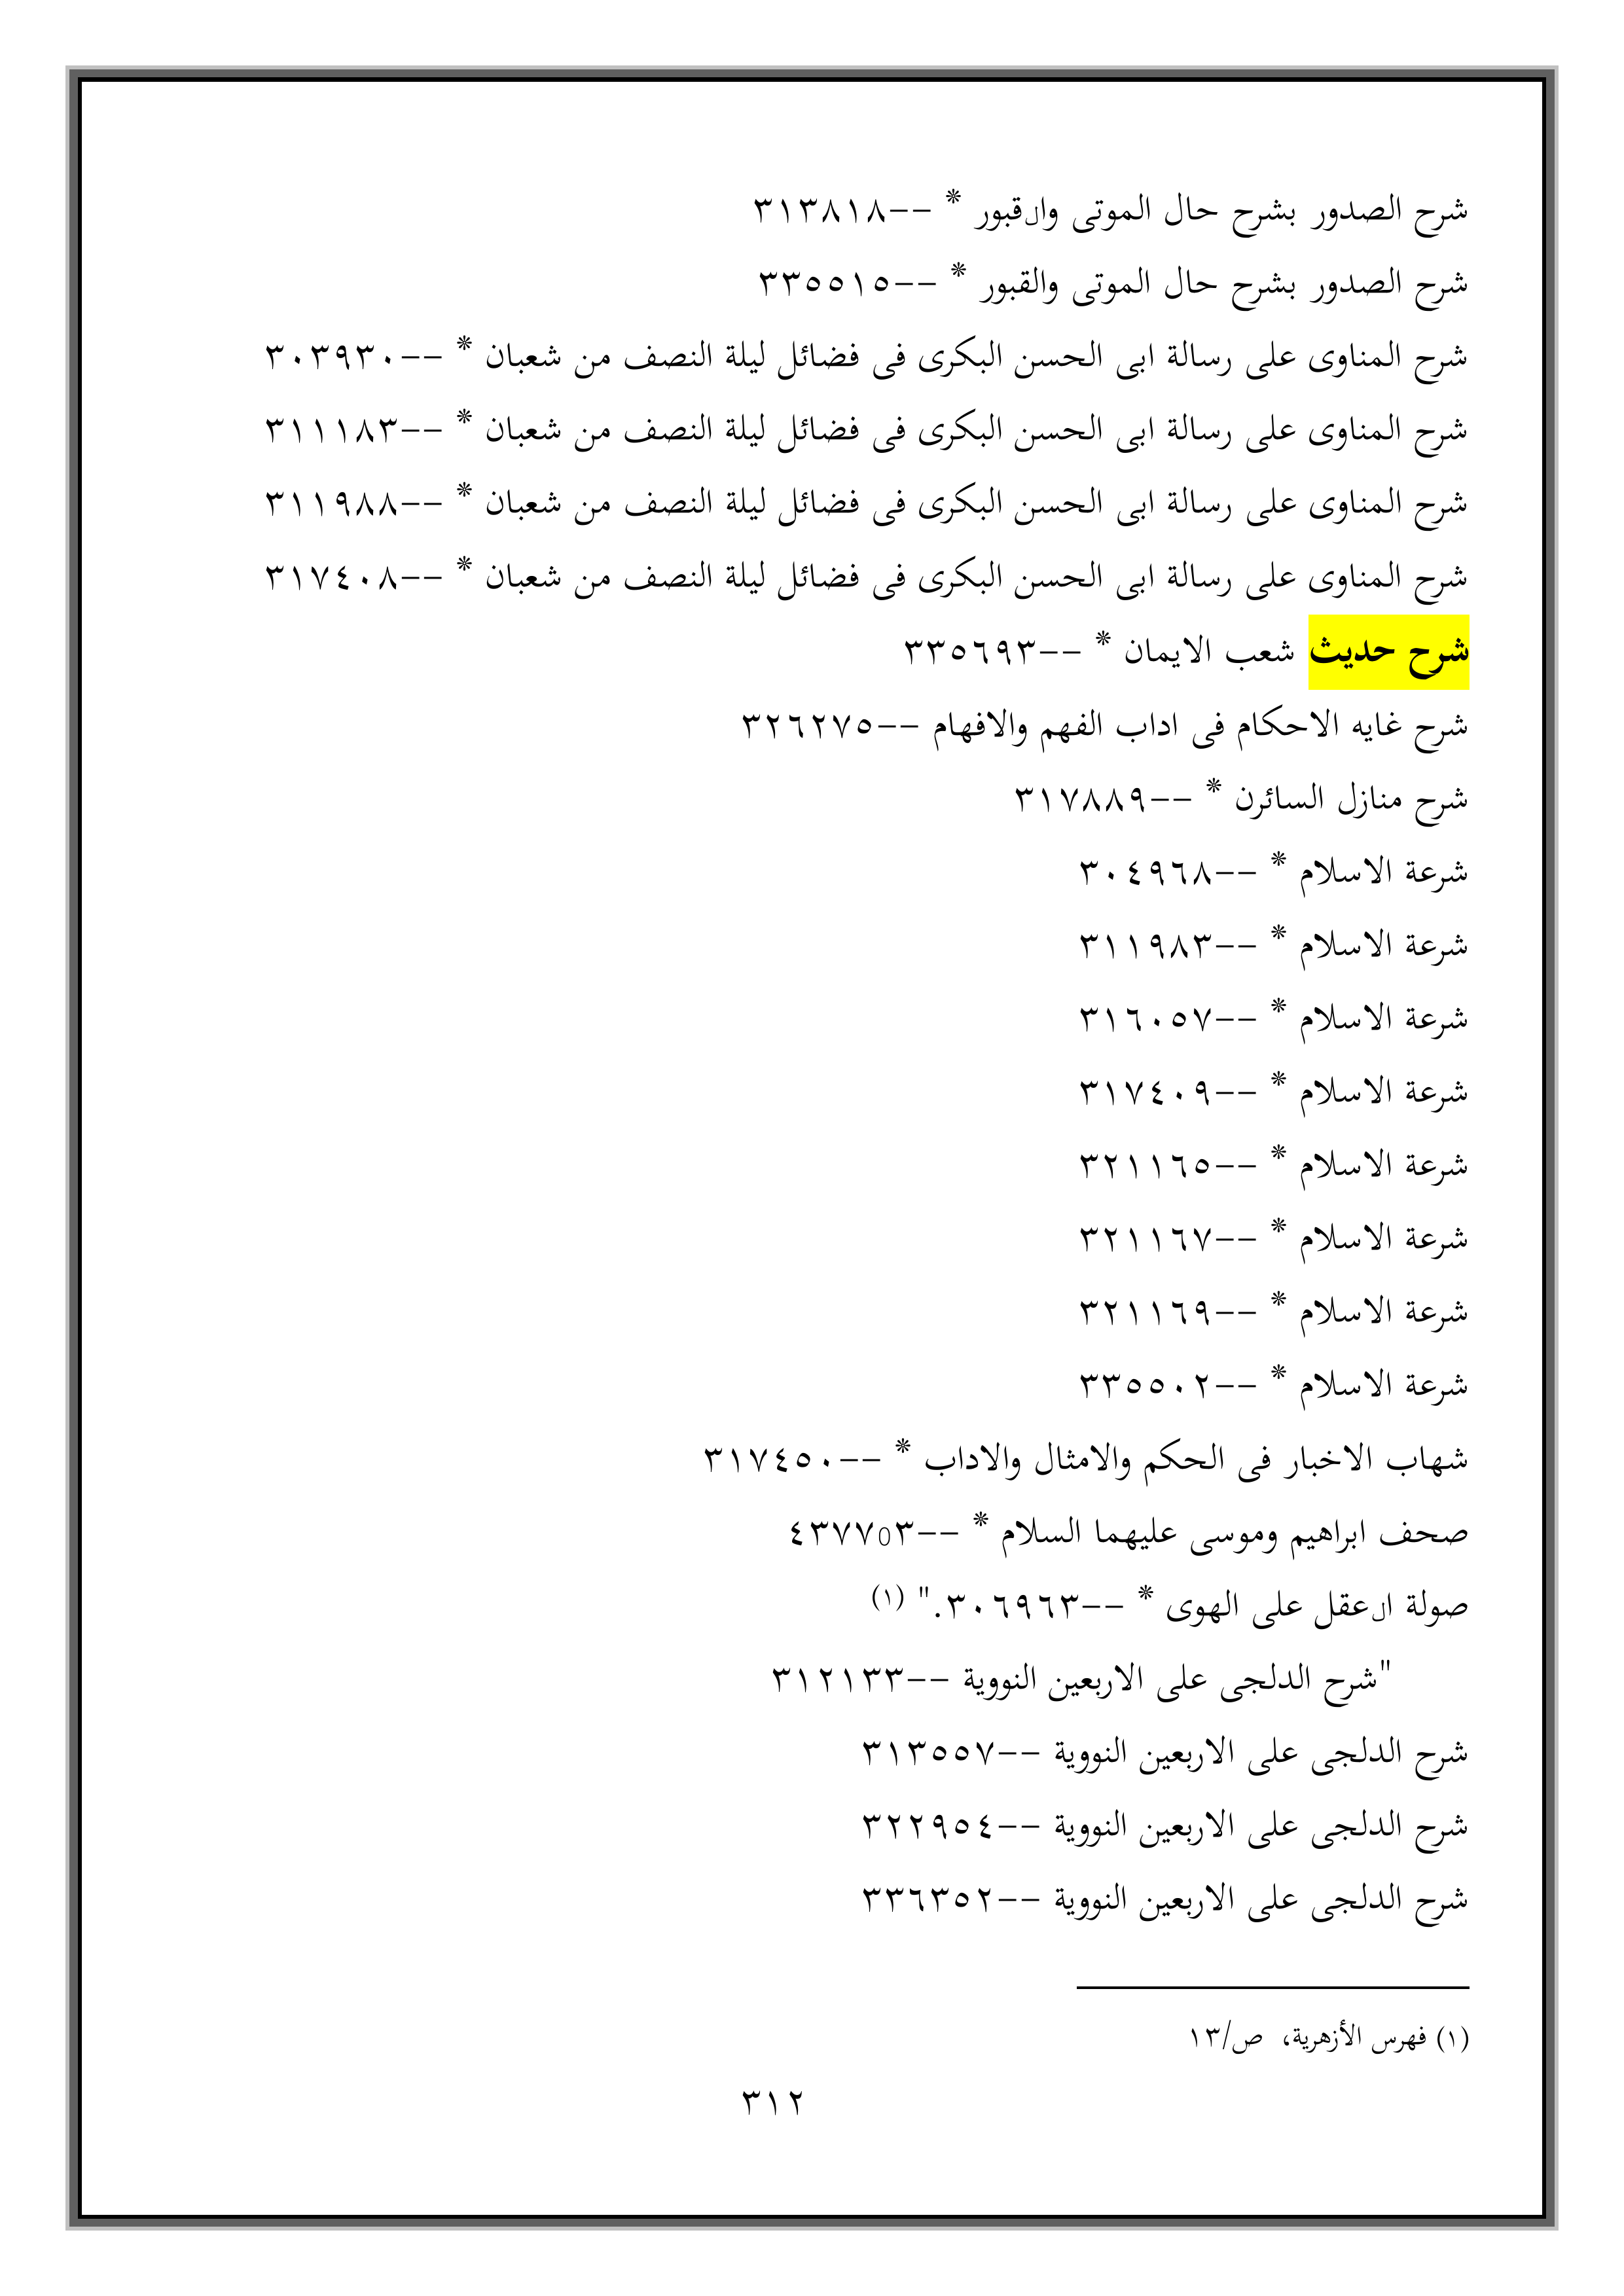 شرح الصدور بشرح حال الموتى وال‌قبور * --٣١٣٨١٨
شرح الصدور بشرح حال الموتى والقبور * --٣٣٥٥١٥
شرح المناوى على رسالة ابى الحسن البكرى فى فضائل ليلة النصف من شعبان * --٣٠٣٩٣٠
شرح المناوى على رسالة ابى الحسن البكرى فى فضائل ليلة النصف من شعبان * --٣١١١٨٣
شرح المناوى على رسالة ابى الحسن البكرى فى فضائل ليلة النصف من شعبان * --٣١١٩٨٨
شرح المناوى على رسالة ابى الحسن البكرى فى فضائل ليلة النصف من شعبان * --٣١٧٤٠٨
شرح حديث شعب الايمان * --٣٣٥٦٩٣
شرح غايه الاحكام فى اداب الفهم والافهام --٣٢٦٢٧٥
شرح منازل السائرن * --٣١٧٨٨٩
شرعة الاسلام * --٣٠٤٩٦٨
شرعة الاسلام * --٣١١٩٨٣
شرعة الاسلام * --٣١٦٠٥٧
شرعة الاسلام * --٣١٧٤٠٩
شرعة الاسلام * --٣٢١١٦٥
شرعة الاسلام * --٣٢١١٦٧
شرعة الاسلام * --٣٢١١٦٩
شرعة الاسلام * --٣٣٥٥٠٢
شهاب الاخبار فى الحكم والامثال والاداب * --٣١٧٤٥٠
صحف ابراهيم وموسى عليهما السلام * --٤٣٧٧٥٣
صولة ال‌عقل على الهوى * --٣٠٦٩٦٣." (١)
"شرح الدلجى على الاربعين النووية --٣١٢١٣٣
شرح الدلجى على الاربعين النووية --٣١٣٥٥٧
شرح الدلجى على الاربعين النووية --٣٢٢٩٥٤
شرح الدلجى على الاربعين النووية --٣٣٦٣٥٢
(١) فهرس الأزهرية، ص/١٣
٣١٢